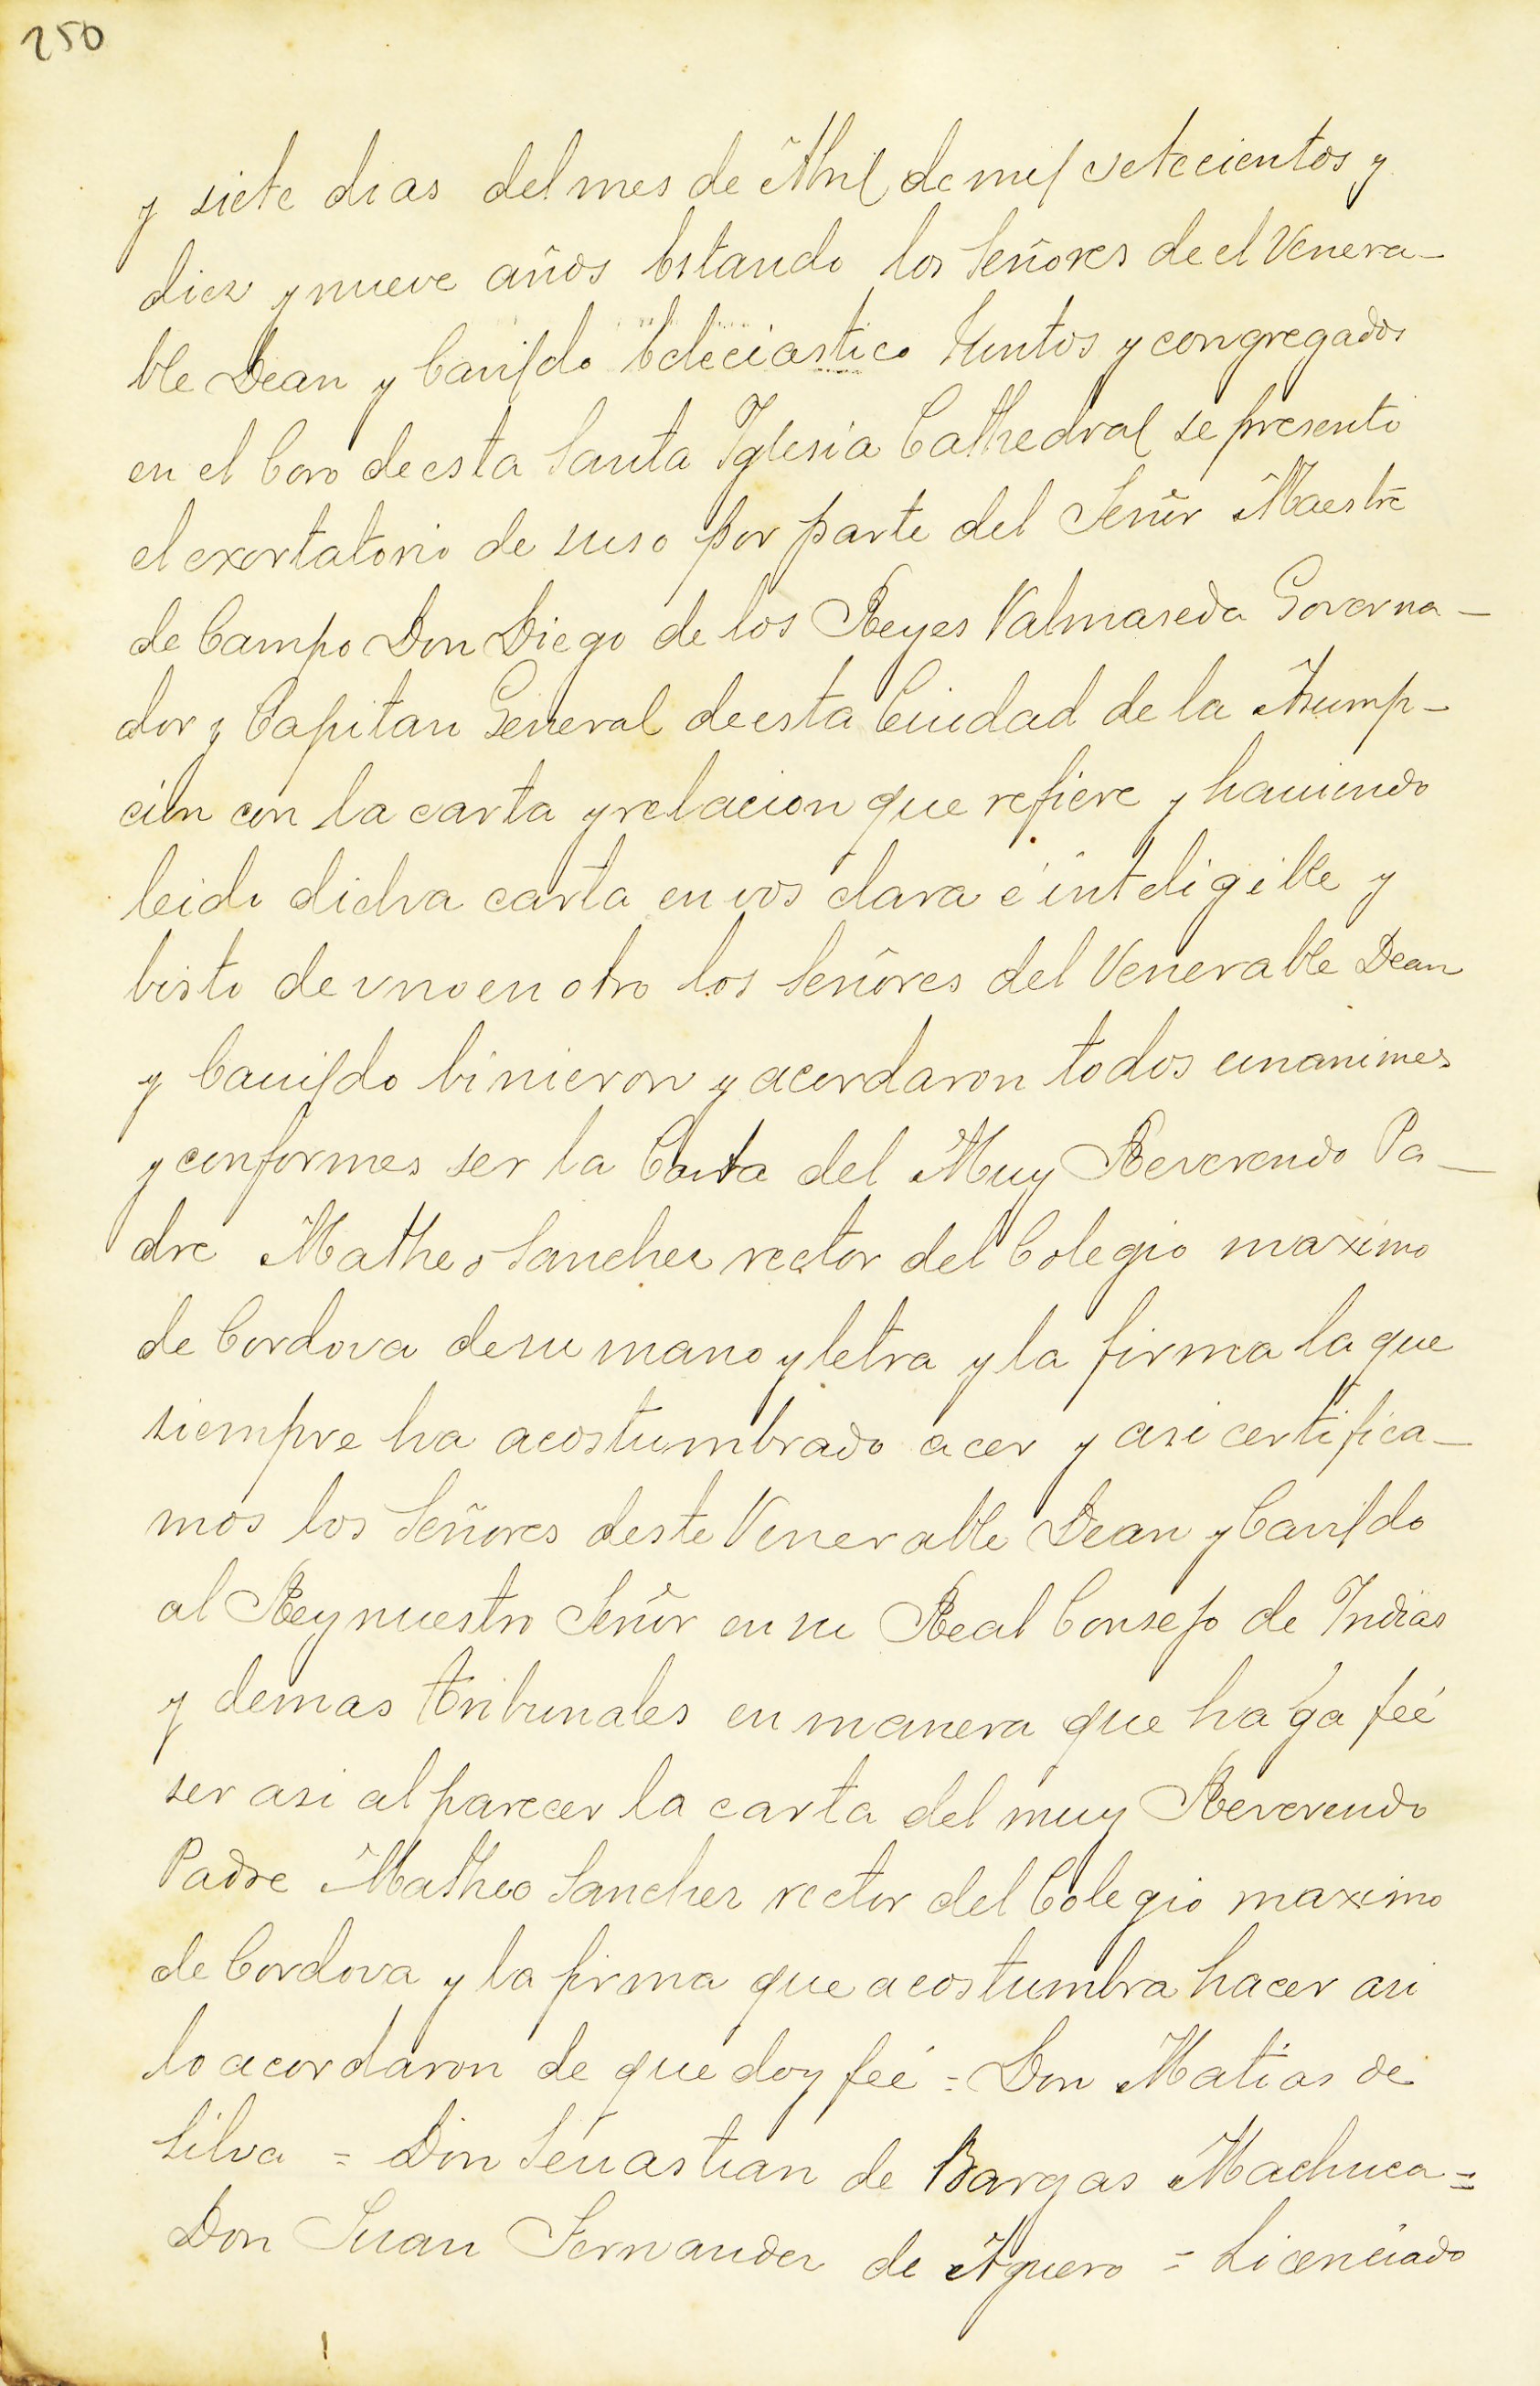 250
y siete dias del mes de Abril de mil setecientos y
diez y nueve años estando los Señores de el Venera-
ble Dean y Cavildo Ecleciastico Juntos y congregados
en el Coro de esta Santa Iglesia Cathedral se presentó
el exortatorio de suso por parte del Señor Maestre
de Campo Don Diego de los Reyes Valmaseda Governa-
dor y Capitan General de esta Ciudad de la Asump-
cion con la carta y relacion que refiere y haviendo
leido dicha carta en vos clara é inteligible y
bisto de uno en otro los Señores del Venerable Dean
y Cavildo binieron y acordaron todos unanimes
y conformes ser la Carta del Muy Reverendo Pa-
dre Matheo Sanchez rector del Colegio maximo
de Cordova de su mano y letra y la firma la que
siempre ha acostumbrado acer y asi certifica-
mos los Señores deste Venerable Dean y Cavildo
al Rey nuestro Señor en su Real Consejo de Indias
y demas tribunales en manera que haga feé
ser asi al parecer la carta del muy Reverendo
Padre Matheo Sanchez rector del Colegio maximo
de Cordova y la firma que acostumbra hacer asi
lo acordaron de que doy feé = Don Matias de
Silva = Don Sevastian de Bargas Machuca =
Don Juan Fernandez de Aguero = Licenciado